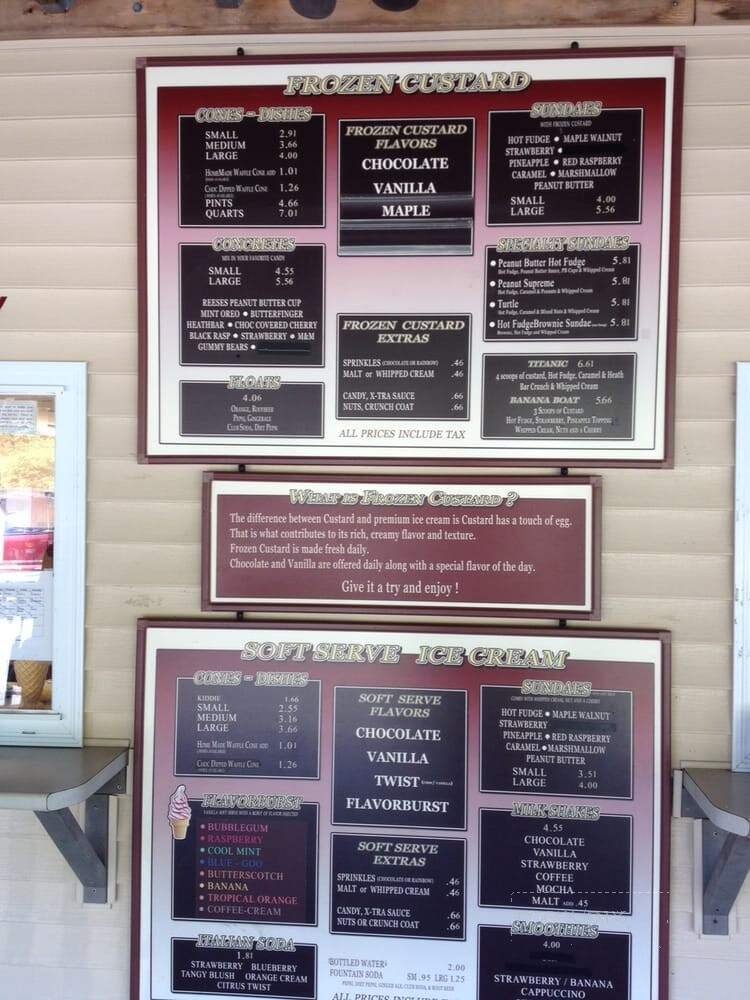 FROZEN CUSTARD
CONES - DISHES
SMALL 2.91
MEDIUM 3.66
LARGE 4.00
HOMEMADE WAFFLE CONE ADD 1.01
CHOC DIPPED WAFFLE CONE 1.26
PINTS 4.66
QUARTS 7.01
CONCRETES
MIX IN YOUR FAVORITE CANDY
SMALL 4.55
LARGE 5.56
REESES PEANUT BUTTER CUP
MINT OREO • BUTTERFINGER
HEATHBAR • CHOC COVERED CHERRY
BLACK RASP • STRAWBERRY • M&M
GUMMY BEARS •
FLOATS
4.06
ORANGE, ROOTBEER
PEPSI, GINGERALE
CLUB SODA, DIET PEPSI
FROZEN CUSTARD
FLAVORS
CHOCOLATE
VANILLA
MAPLE
FROZEN CUSTARD
EXTRAS
SPRINKLES (CHOCOLATE OR RAINBOW) .46
MALT or WHIPPED CREAM .46
CANDY, X-TRA SAUCE .66
NUTS, CRUNCH COAT .66
ALL PRICES INCLUDE TAX
SUNDAES
WITH FROZEN CUSTARD
HOT FUDGE • MAPLE WALNUT
STRAWBERRY •
PINEAPPLE • RED RASPBERRY
CARAMEL • MARSHMALLOW
PEANUT BUTTER
SMALL 4.00
LARGE 5.56
SPECIALTY SUNDAES
• Peanut Butter Hot Fudge 5.81
Hot Fudge, Peanut Butter Sauce, PB Cups & Whipped Cream
• Peanut Supreme 5.81
Hot Fudge, Caramel & Peanuts & Whipped Cream
• Turtle 5.81
Hot Fudge, Caramel & Mixed Nuts & Whipped Cream
• Hot FudgeBrownie Sundae 5.81
Brownies, Hot Fudge and Whipped Cream
TITANIC 6.61
4 scoops of custard, Hot Fudge, Caramel & Heath
Bar Crunch & Whipped Cream
BANANA BOAT 5.66
3 SCOOPS OF CUSTARD
HOT FUDGE, STRAWBERRY, PINEAPPLE TOPPING
WHIPPED CREAM, NUTS AND A CHERRY
WHAT IS FROZEN CUSTARD ?
The difference between Custard and premium ice cream is Custard has a touch of egg.
That is what contributes to its rich, creamy flavor and texture.
Frozen Custard is made fresh daily.
Chocolate and Vanilla are offered daily along with a special flavor of the day.
Give it a try and enjoy !
SOFT SERVE ICE CREAM
CONES - DISHES
KIDDIE 1.66
SMALL 2.55
MEDIUM 3.16
LARGE 3.66
HOME MADE WAFFLE CONE ADD 1.01
CHOC DIPPED WAFFLE CONE 1.26
FLAVORBURST
VANILLA SOFT SERVE WITH A BURST OF FLAVOR INJECTED
• BUBBLEGUM
• RASPBERRY
• COOL MINT
• BLUE - GOO
• BUTTERSCOTCH
• BANANA
• TROPICAL ORANGE
• COFFEE-CREAM
ITALIAN SODA
1.81
STRAWBERRY BLUEBERRY
TANGY BLUSH ORANGE CREAM
CITRUS TWIST
SOFT SERVE
FLAVORS
CHOCOLATE
VANILLA
TWIST
FLAVORBURST
SOFT SERVE
EXTRAS
SPRINKLES (CHOCOLATE OR RAINBOW) .46
MALT or WHIPPED CREAM .46
CANDY, X-TRA SAUCE .66
NUTS OR CRUNCH COAT .66
BOTTLED WATER 2.00
FOUNTAIN SODA SM .95 LRG 1.25
PEPSI, DIET PEPSI, GINGER ALE, CLUB SODA, & ROOT BEER
ALL PRICES INCLUDE
SUNDAES
COMES WITH WHIPPED CREAM, NUT, AND A CHERRY
HOT FUDGE • MAPLE WALNUT
STRAWBERRY
PINEAPPLE • RED RASPBERRY
CARAMEL • MARSHMALLOW
PEANUT BUTTER
SMALL 3.51
LARGE 4.00
MILK SHAKES
4.55
CHOCOLATE
VANILLA
STRAWBERRY
COFFEE
MOCHA
MALT ADD .45
SMOOTHIES
4.00
STRAWBERRY / BANANA
CAPPUCCINO